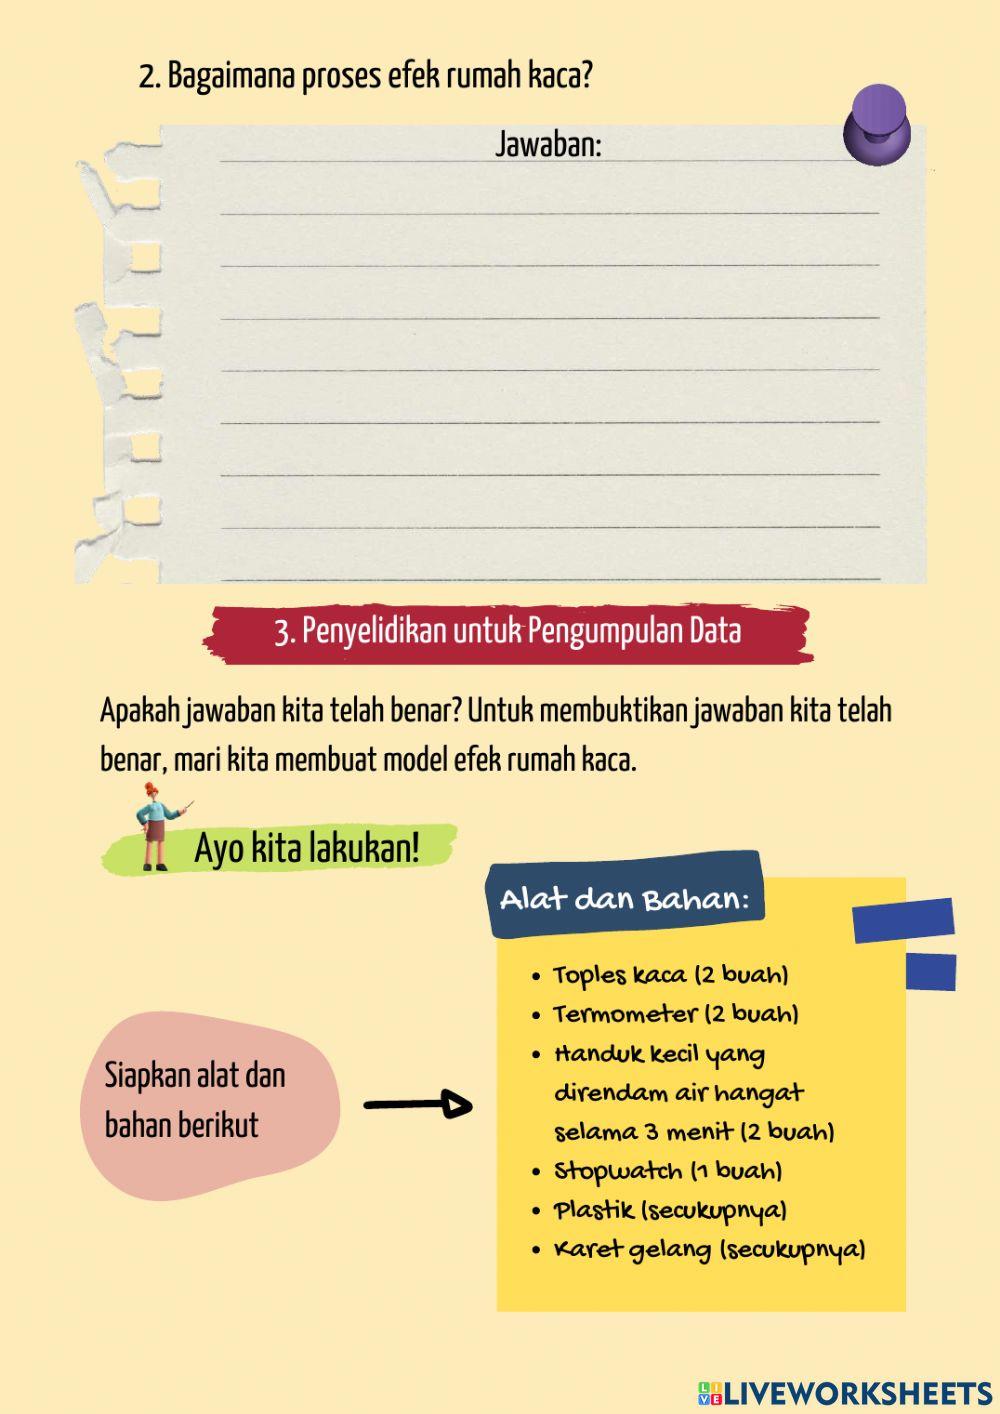 2. Bagaimana proses efek rumah kaca?
Jawaban:
3. Penyelidikan untuk Pengumpulan Data
Apakah jawaban kita telah benar? Untuk membuktikan jawaban kita telah
benar, mari kita membuat model efek rumah kaca.
Ayo kita lakukan!
Alat dan Bahan:
• Toples kaca (2 buah)
• Termometer (2 buah)
• Handuk kecil yang
direndam air hangat
selama 3 menit (2 buah)
• Stopwatch (1 buah)
• Plastik (secukupnya)
• Karet gelang (secukupnya)
Siapkan alat dan
bahan berikut
LIVE LIVEWORKSHEETS